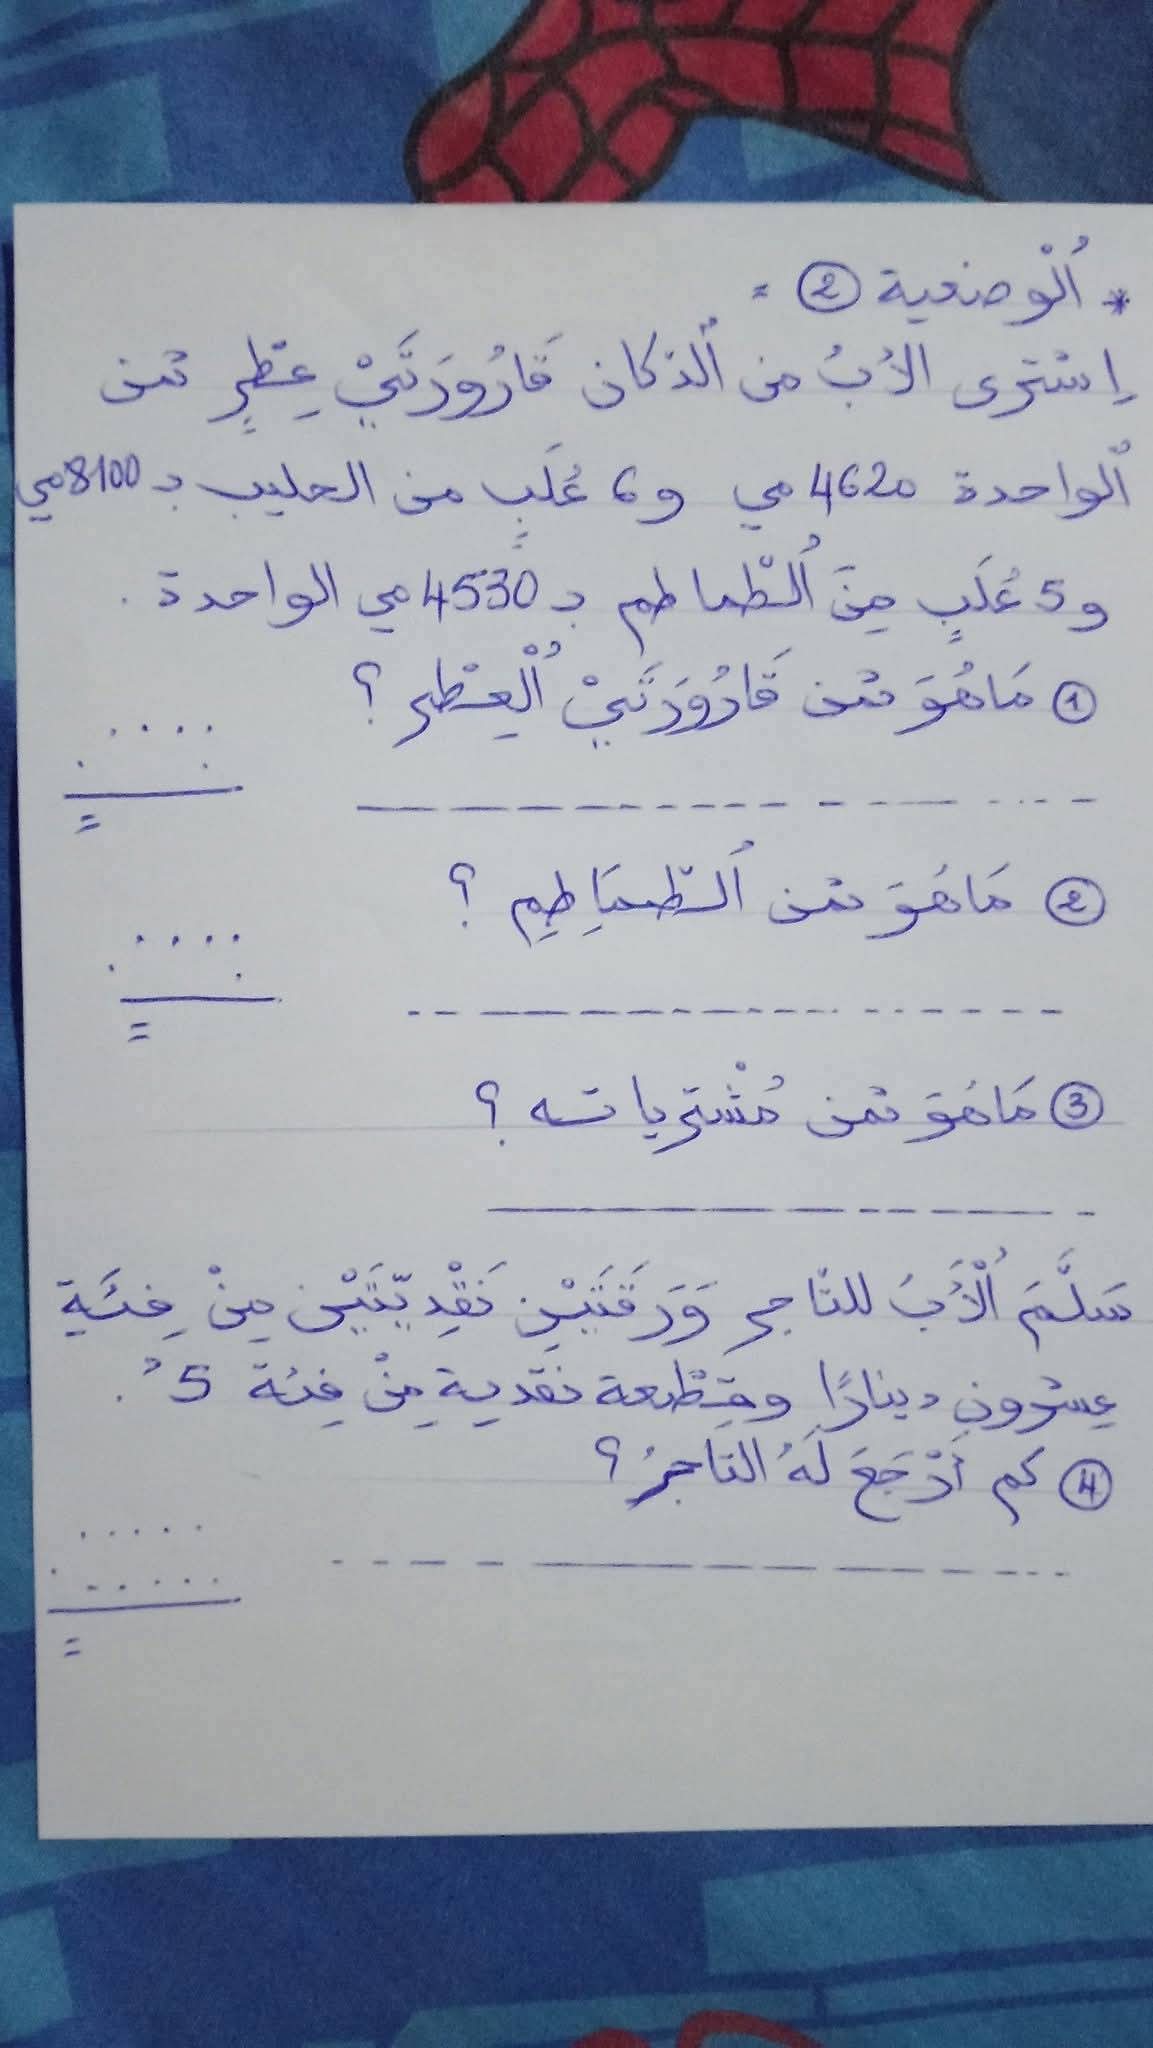 * اُلْوضعية ② =
اِشترى الأبُ من اُلدّكان قَارُورَتَيْ عِطْرٍ ثمن
اُلواحدة 4620 مي و 6 عُلَبٍ من الحليب بـ 8100 مي
و 5 عُلَبٍ مِنَ اُلطّماطم بـ 4530 مي الواحدة .
① مَاهُوَ ثمن قَارُورَتَيْ اُلْعِطْر ؟
. . . .
. .
=
② مَاهُوَ ثمن اُلطّمَاطِمِ ؟
. . . .
. .
=
③ مَاهُوَ ثمن مُشْترياته ؟
سَلَّمَ اُلْأَبَ للتّاجر وَرَقَتَيْنِ نَقْدِيّتَيْن مِنْ فِئَةِ
عِشرُونِ دينارًا وقِطْعة نقدية مِنْ فِئة 5 د .
④ كم أَرْجَعَ لَهُ التاجرُ ؟
. . . . .
. . . . . .
=